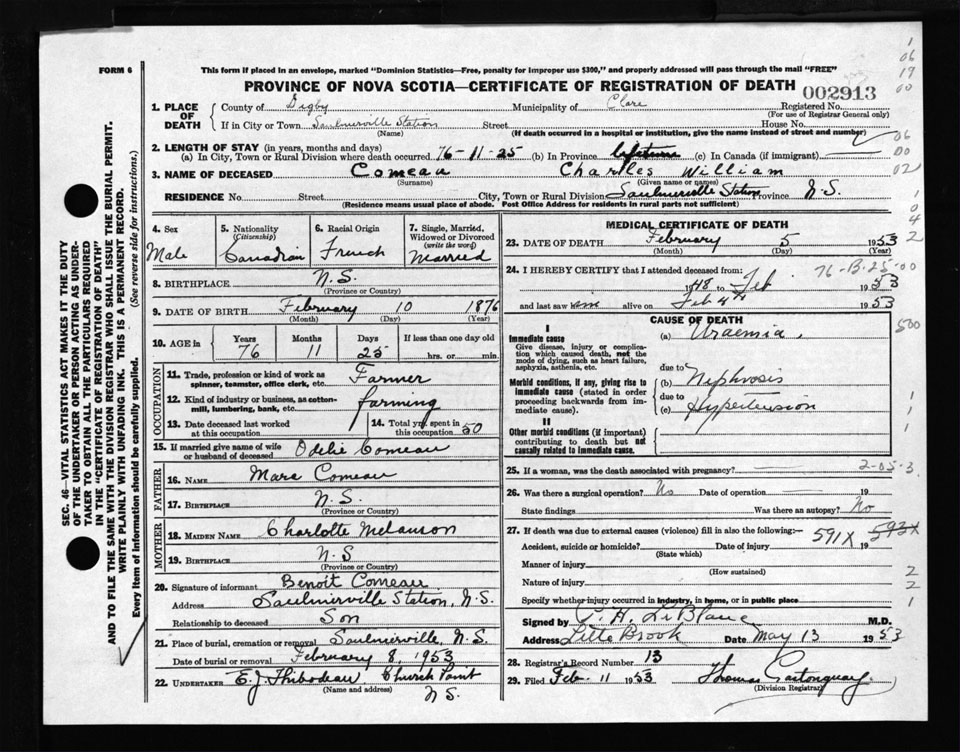 FORM 6
This form if placed in an envelope, marked "Dominion Statistics—Free, penalty for improper use $300," and properly addressed will pass through the mail "FREE"
PROVINCE OF NOVA SCOTIA—CERTIFICATE OF REGISTRATION OF DEATH
002913
1. PLACE OF DEATH
County of Digby Municipality of Clare Registered No.
(For use of Registrar General only)
If in City or Town Saulnierville Station Street House No.
(Name) (If death occurred in a hospital or institution, give the name instead of street and number)
2. LENGTH OF STAY (in years, months and days)
(a) In City, Town or Rural Division where death occurred 76-11-25 (b) In Province lifetime (c) In Canada (if immigrant)
3. NAME OF DECEASED Comeau Charles William
(Surname) (Given name or names)
RESIDENCE No. Street City, Town or Rural Division Saulnierville Station Province N.S.
(Residence means usual place of abode. Post Office Address for residents in rural parts not sufficient)
4. Sex Male
5. Nationality (Citizenship) Canadian
6. Racial Origin French
7. Single, Married, Widowed or Divorced (write the word) Married
8. BIRTHPLACE N.S.
(Province or Country)
9. DATE OF BIRTH February 10 1876
(Month) (Day) (Year)
10. AGE in Years 76 Months 11 Days 25 If less than one day old hrs. or min.
OCCUPATION
11. Trade, profession or kind of work as spinner, teamster, office clerk, etc. Farmer
12. Kind of industry or business, as cotton-mill, lumbering, bank, etc. farming
13. Date deceased last worked at this occupation
14. Total yrs. spent in this occupation 50
15. If married give name of wife or husband of deceased Odelie Comeau
FATHER
16. NAME Marc Comeau
17. BIRTHPLACE N.S.
(Province or Country)
MOTHER
18. MAIDEN NAME Charlotte Melanson
19. BIRTHPLACE N.S
(Province or Country)
20. Signature of informant Benoit Comeau
Address Saulnierville Station, N.S.
Relationship to deceased Son
21. Place of burial, cremation or removal Saulnierville, N.S.
Date of burial or removal February 8, 1953
22. UNDERTAKER E.J. Thibodeau Church Point
(Name and address) N S.
MEDICAL CERTIFICATE OF DEATH
23. DATE OF DEATH February 5 1953
(Month) (Day) (Year)
24. I HEREBY CERTIFY that I attended deceased from:
76-B-25-00
1948 to Feb 1953
and last saw him alive on Feb 4th 1953
CAUSE OF DEATH
I
Immediate cause
Give disease, injury or complication which caused death, not the mode of dying, such as heart failure, asphyxia, asthenia, etc.
(a) Uraemia,
due to
Morbid conditions, if any, giving rise to immediate cause (stated in order proceeding backwards from immediate cause).
(b) Nephrosis
due to
(c) Hypertension
II
Other morbid conditions (if important) contributing to death but not causally related to immediate cause.
25. If a woman, was the death associated with pregnancy?
2-05-3
26. Was there a surgical operation? No Date of operation 19
State findings Was there an autopsy? No
27. If death was due to external causes (violence) fill in also the following:—
591X 593X
Accident, suicide or homicide? Date of injury 19
(State which)
Manner of injury
(How sustained)
Nature of injury
Specify whether injury occurred in industry, in home, or in public place
Signed by P. H. LeBlanc M.D.
Address Little Brook Date May 13 1953
28. Registrar's Record Number 13
29. Filed Feb 11 1953 Thomas Castonguay
(Division Registrar)
SEC. 46—VITAL STATISTICS ACT MAKES IT THE DUTY
OF THE UNDERTAKER OR PERSON ACTING AS UNDER-
TAKER TO OBTAIN ALL THE PARTICULARS REQUIRED
IN THE "CERTIFICATE OF REGISTRATION OF DEATH"
AND TO FILE THE SAME WITH THE DIVISION REGISTRAR WHO SHALL ISSUE THE BURIAL PERMIT.
WRITE PLAINLY WITH UNFADING INK. THIS IS A PERMANENT RECORD.
Every item of information should be carefully supplied. (See reverse side for instructions.)
1
06
17
00
06
00
02
1
0
4
2
500
1
1
1
2
2
1